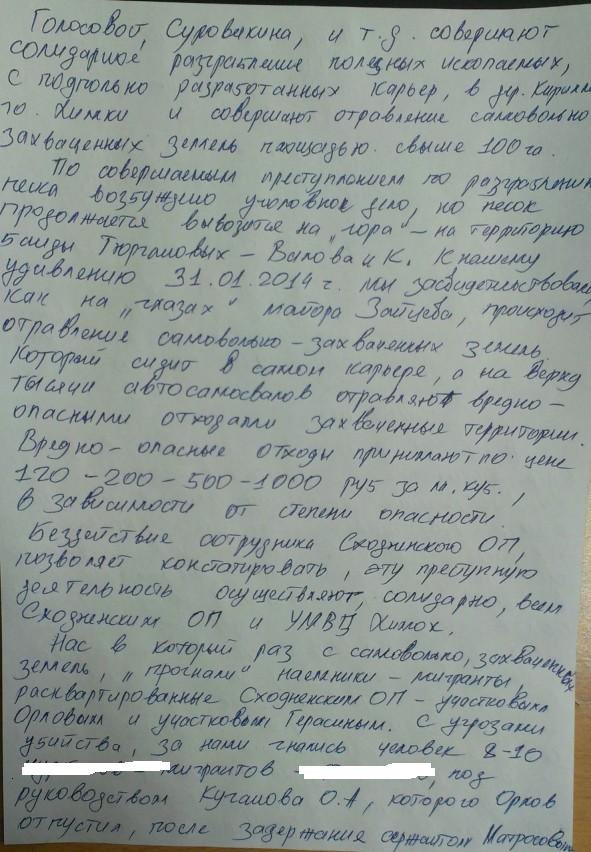 Голосовой, Суровикина, и т.д. совершают
солидарное разграбление полезных ископаемых,
с подпольно разработанных карьер, в дер. Кирилл
го. Химки и совершают отравление самовольно
захваченных земель площадью. свыше 100га.
По совершаемым преступлением по разграблении
песка возбуждено уголовное дело, но песок
продолжается вывозится на „гора" – на территорию
банды Тюргашовых – Валова и К. К нашему
удивлению 31.01.2014г. мы засвидетельствовали,
как на „глазах" майора Зайцева, происходит
отравление самовольно – захваченных земель.
Который сидит в самом карьере, а на верху
тысячи автосамосвалов отравляют вредно –
опасными отходами захваченные территории.
Вредно – опасные отходы принимают по цене
120 – 200 – 500 – 1000 руб за м. куб.,
в зависимости от степени опасности.
Бездействие сотрудника Сходненского ОП,
позволяет констатировать, эту преступную
деятельность осуществляют, солидарно, всем
Сходненским ОП и УМВД Химок.
Нас в который раз с самовольно, захваченных
земель, „прогнали" наемники – мигранты,
расквартированные Сходненским ОП – участковым
Орловым и участковым Герасиным. С угрозами
убийства, за нами гнались человек 8-10
мигрантов – под
руководством Кугашова О.А, которого Орлов
отпустил, после задержания сержантом Матросовым